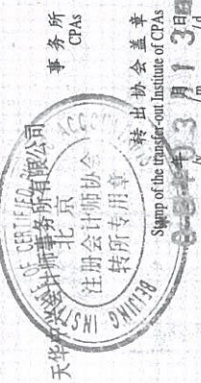 事务所
CPAs
会计师事务所有限公司
BEIJING INSTITUTE OF CERTIFIED
ACCOUNTANTS
北京
注册会计师协会
转所专用章
转出协会盖章
Stamp of the transfer-out Institute of CPAs
年 月 日
/y /m /d